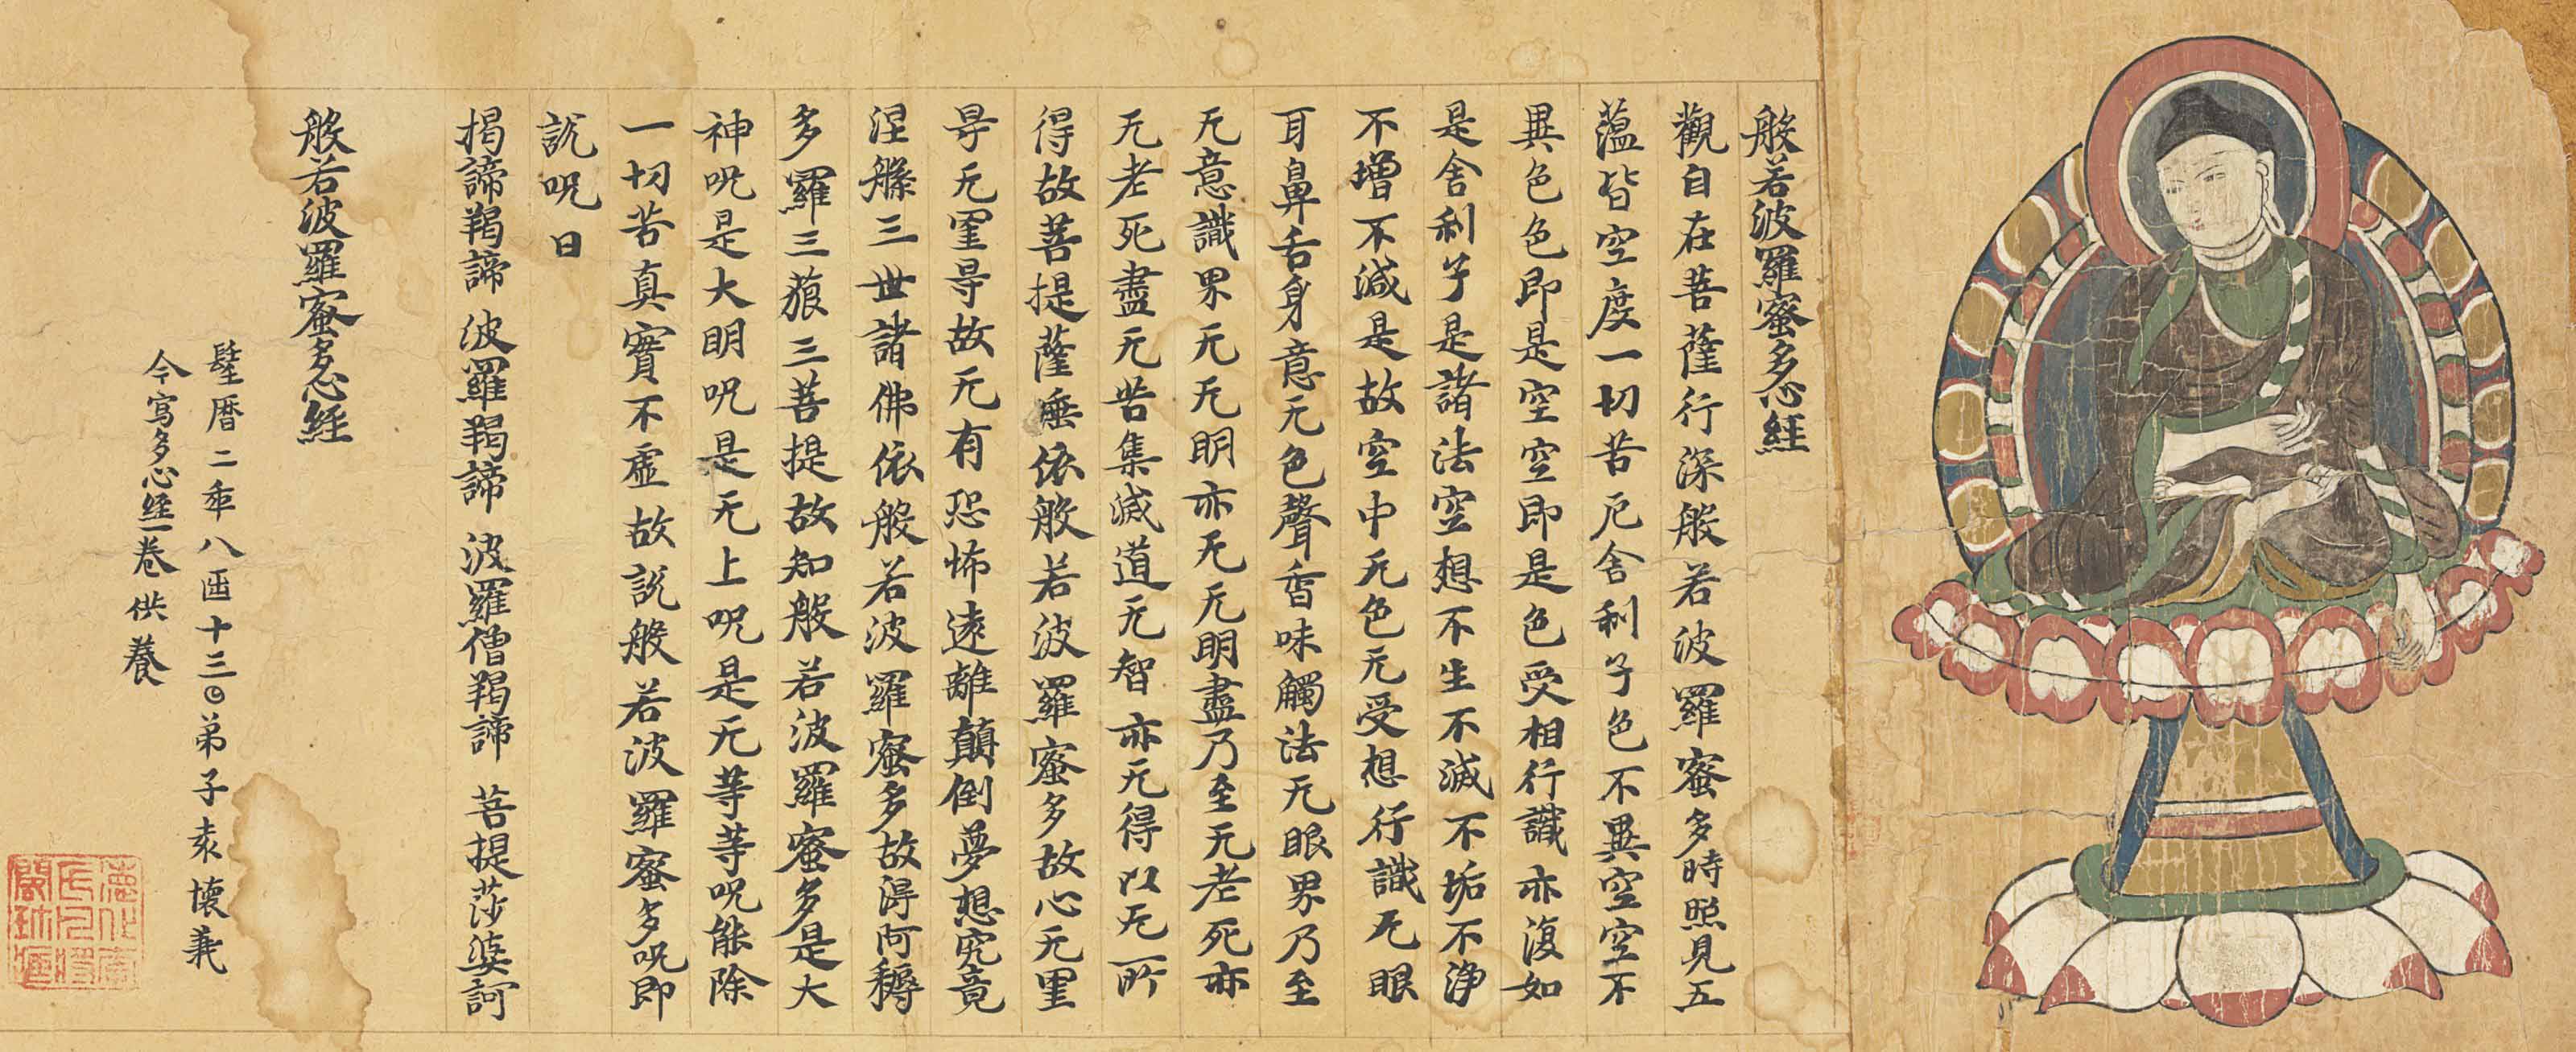 般若波羅蜜多心經
觀自在菩薩行深般若波羅蜜多時照見五
薀皆空度一切苦厄舍利子色不異空空不
異色色即是空空即是色受相行識亦復如
是舍利子是諸法空想不生不滅不垢不淨
不增不減是故空中无色无受想行識无眼
耳鼻舌身意无色聲香味觸法无眼界乃至
无意識界无无明亦无无明盡乃至无老死亦
无老死盡无苦集滅道无智亦无得以无所
得故菩提薩埵依般若波羅蜜多故心无罣
㝵无罣㝵故无有恐怖遠離顛倒夢想究竟
涅槃三世諸佛依般若波羅蜜多故得阿耨
多羅三藐三菩提故知般若波羅蜜多是大
神呪是大明呪是无上呪是无等等呪能除
一切苦真實不虛故說般若波羅蜜多呪即
說呪曰
揭諦羯諦 波羅羯諦 波羅僧羯諦 菩提莎婆訶
般若波羅蜜多心經
曆二年八𠥱十三〇弟子袁懷義
今寫多心經一卷供養